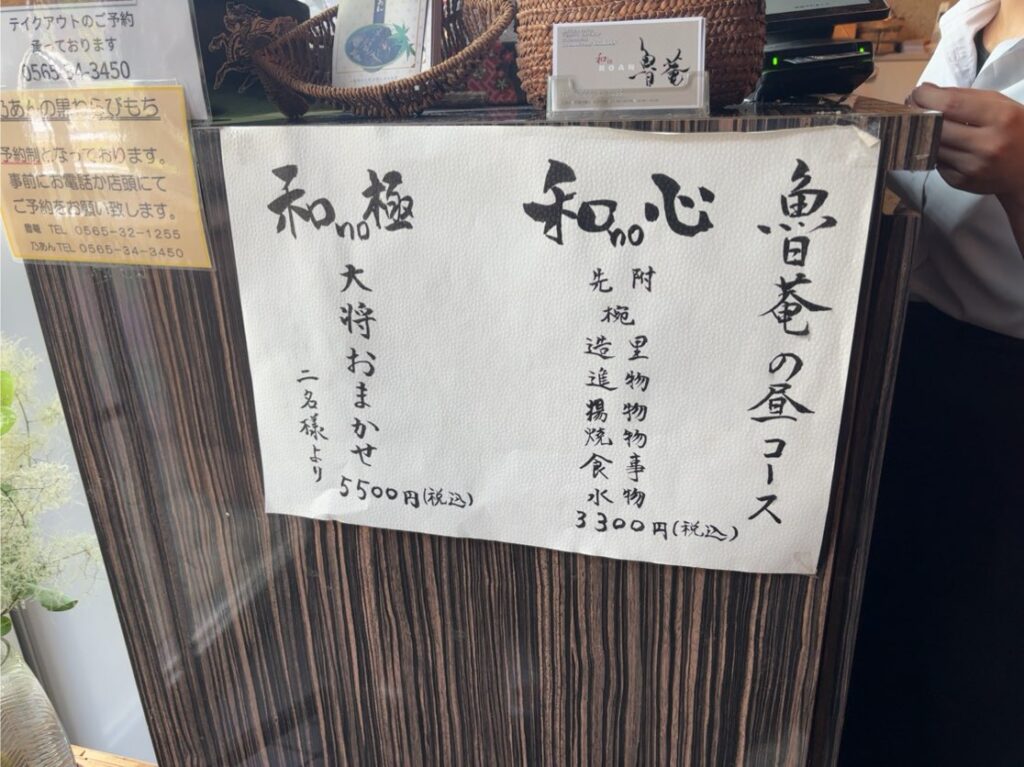 テイクアウトのご予約
承っております
0565-34-3450
乃あんの黒わらびもち
予約制となっております。
事前にお電話か店頭にて
ご予約をお願い致します。
魯菴 TEL 0565-32-1255
乃あん TEL 0565-34-3450
和
ROAN
魯菴
魯菴の昼コース
和no心
先附
椀
造里
進物
揚物
焼物
食事
水物
3300円(税込)
和no極
大将おまかせ
二名様より
5500円(税込)